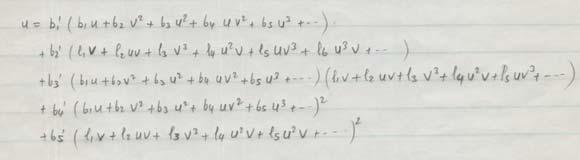 u = b₁′ (b₁u + b₂ v² + b₃ u² + b₄ uv² + b₅ u³ + ---)
+ b₂′ (l₁v + l₂uv + l₃ v³ + l₄ u²v + l₅ uv³ + l₆ u³v + --- )
+ b₃′ (b₁u + b₂v² + b₃ u² + b₄ uv² + b₅ u³ + ---) (l₁v + l₂ uv + l₃ v³ + l₄ u²v + l₅ uv³ + ---)
+ b₄′ (b₁u + b₂ v² + b₃ u² + b₄ uv² + b₅ u³ + ---)²
+ b₅′ (l₁v + l₂uv + l₃ v³ + l₄ u²v + l₅ u³v + ---)²